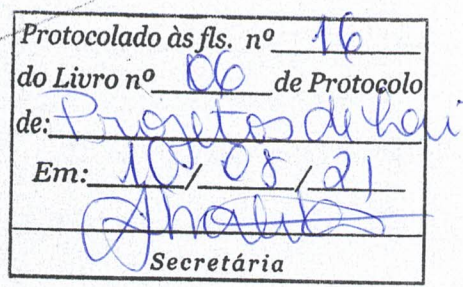 Protocolado às fls. nº 16
do Livro nº 06 de Protocolo
de: Projetos de Lei
Em: 10/08/21
Secretária